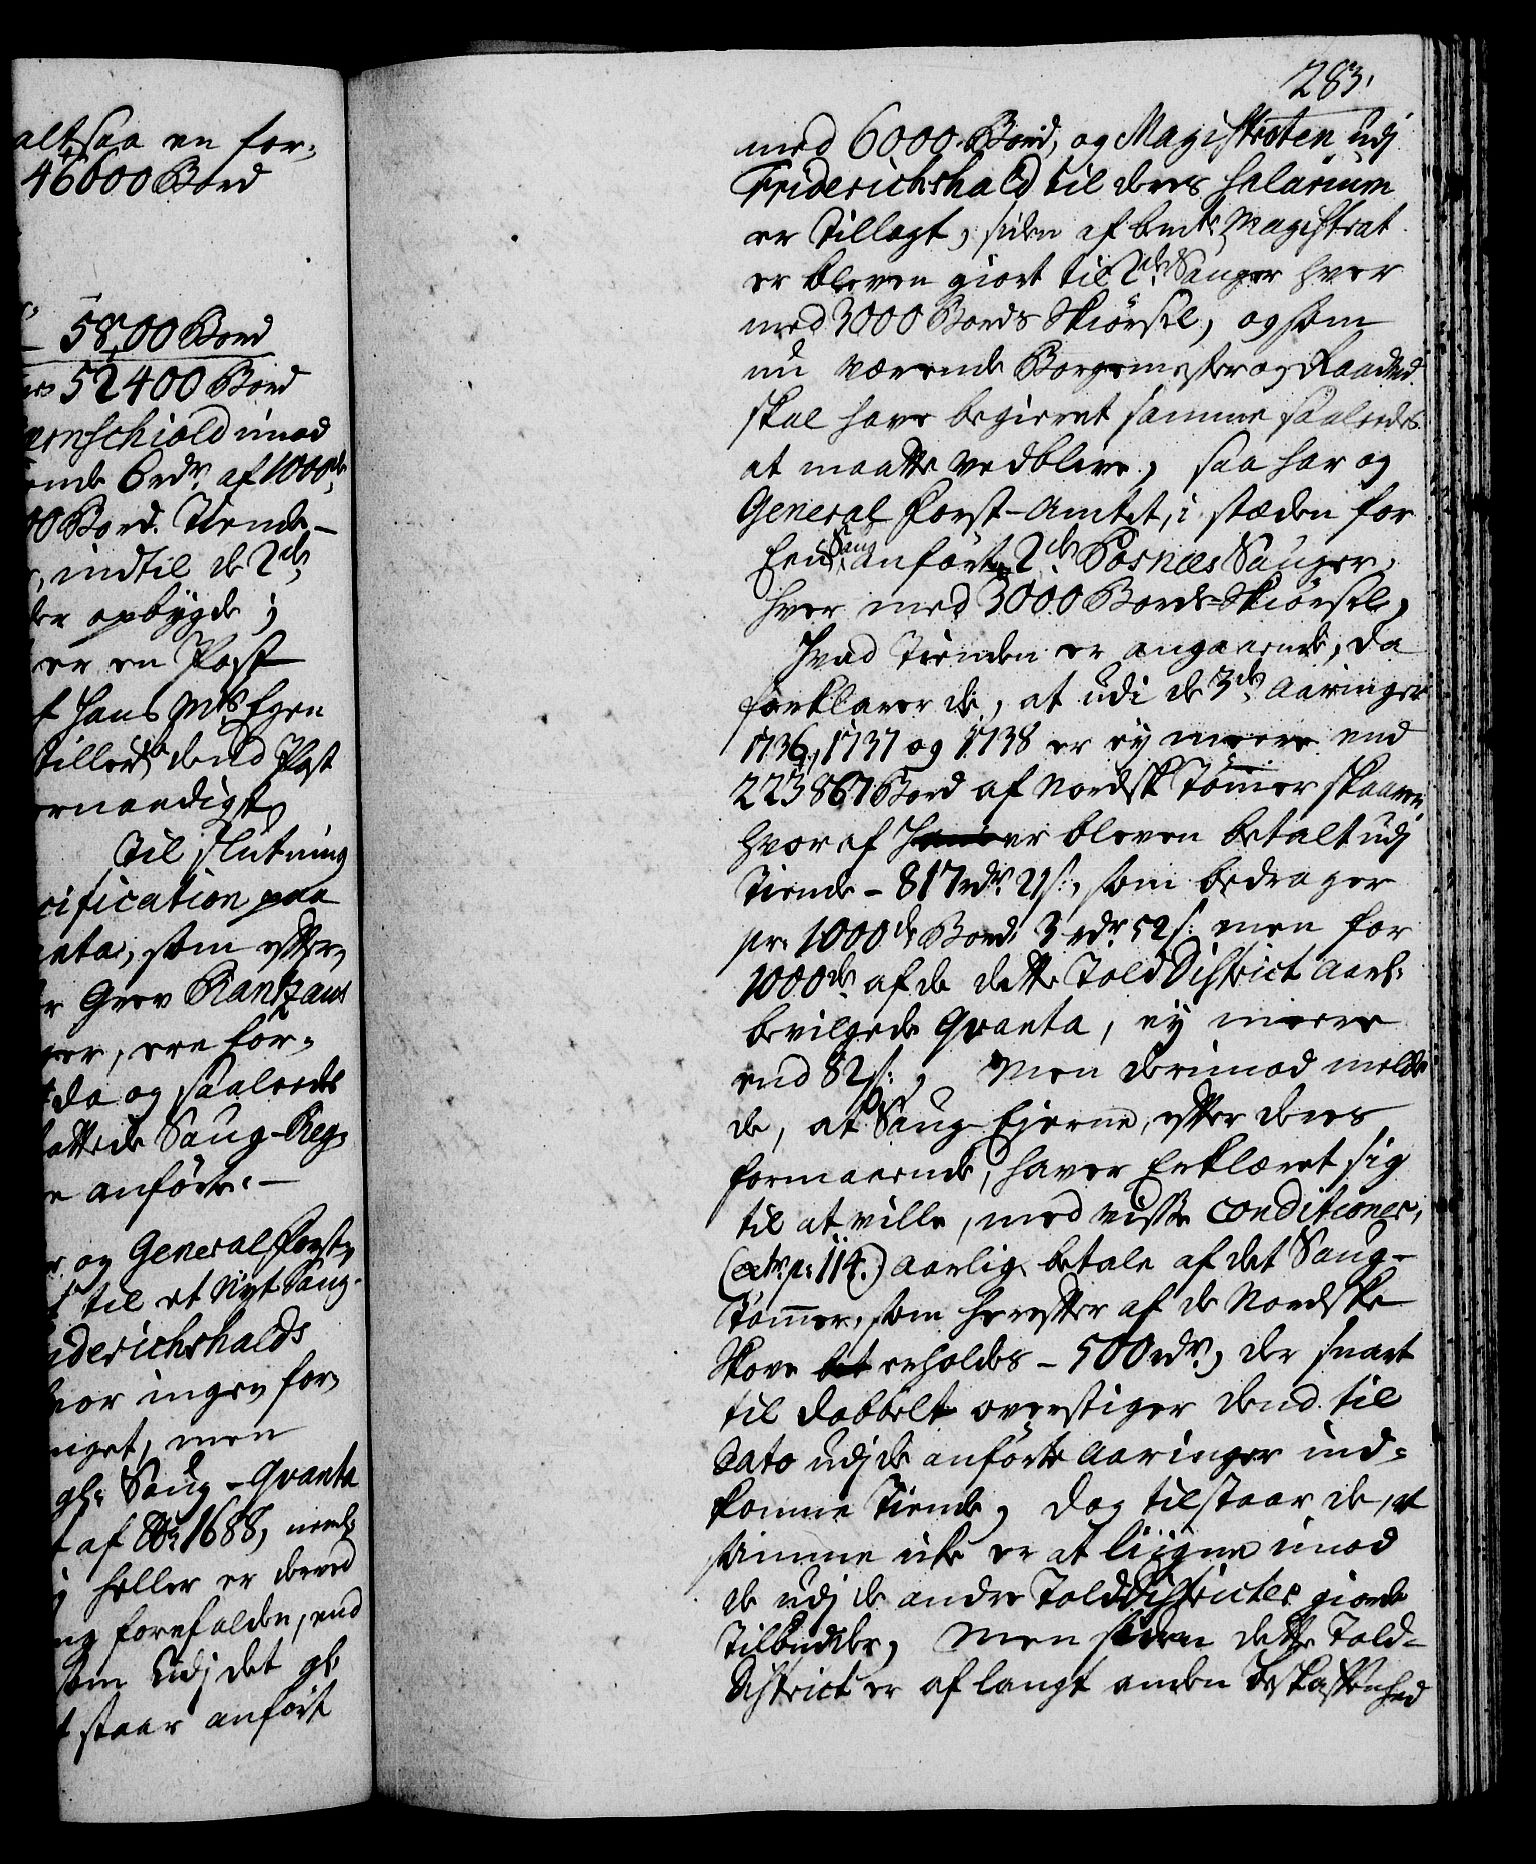 altsaa en for-
46600 Bord
5800 Bord
52400 Bord
ernschiold imod
ende 6 rdr. af 1000de
00 Bord. Tiende-
, indtil de 2de
der opbygde;
er en Post
f Hans Mts Egen
tillend dend Post
ernaadigst
Til slutning
cification paa
anta, som efter,
r Grev Rantzaus
ger, ere for-
t da og saaledes
fattede Saug-Reg-
e anförte. -
r og General Forst-
t til et Nyt Saug-
iderichshalds
hvor ingen for-
inget, men
gl: Saug-Qvanta
t af Ao. 1688, neml:
heller er derved
ng forefalden, end
som udj det gl:
t staar anfört
283.
med 6000 Bord, og Magistraten udj
Friderichshald til deres Salarium
er tillagt, siden af bmte Magistrat
er bleven giort til 2de Sauger hver
med 3000 Bords Skiørsel, og som
nu værende Borgemester og Raadmd.
skal have begieret samme saaledes
at maatte vedblive, saa har og
General Forst-Amtet, i stæden for
Een Saug anfört 2de Posnes Sauger,
hver med 3000 Bords-Skiørsel,
Hvad Tienden er angaaende, da
forklarer de, at udi de 3de Aaringer
1736, 1737 og 1738 er ey meere end
223867 Bord af Nordsk Tömmer skaaren,
hvoraf er bleven betalt udj
Tiende - 817 rdr. 21 s:, som bedrager
pr. 1000de Bord. 3 rdr. 52 s: men for
1000de af de dette Told District aarl:
bevilgede Qvanta, ey meere
end 82 s:, Men derimod melde
de, at Saug-Ejerne, efter deres
formaaende, haver Erklæret sig
til at ville, med visse Conditioner,
(extr. p: 114.) aarlig betale af det Saug-
Tömmer, som herefter af de Nordske
Skove erholdes - 500 rdr., der snart
til dobbelt overstiger dend til
Dato udj de anförte Aaringer ind-
komne Tiende, dog tilstaar de, at
samme icke er at liigne imod
de udj de andre Told Districter giorde
Tilbudde, Men som dette Told-
District er af langt anden Beskaffenhed